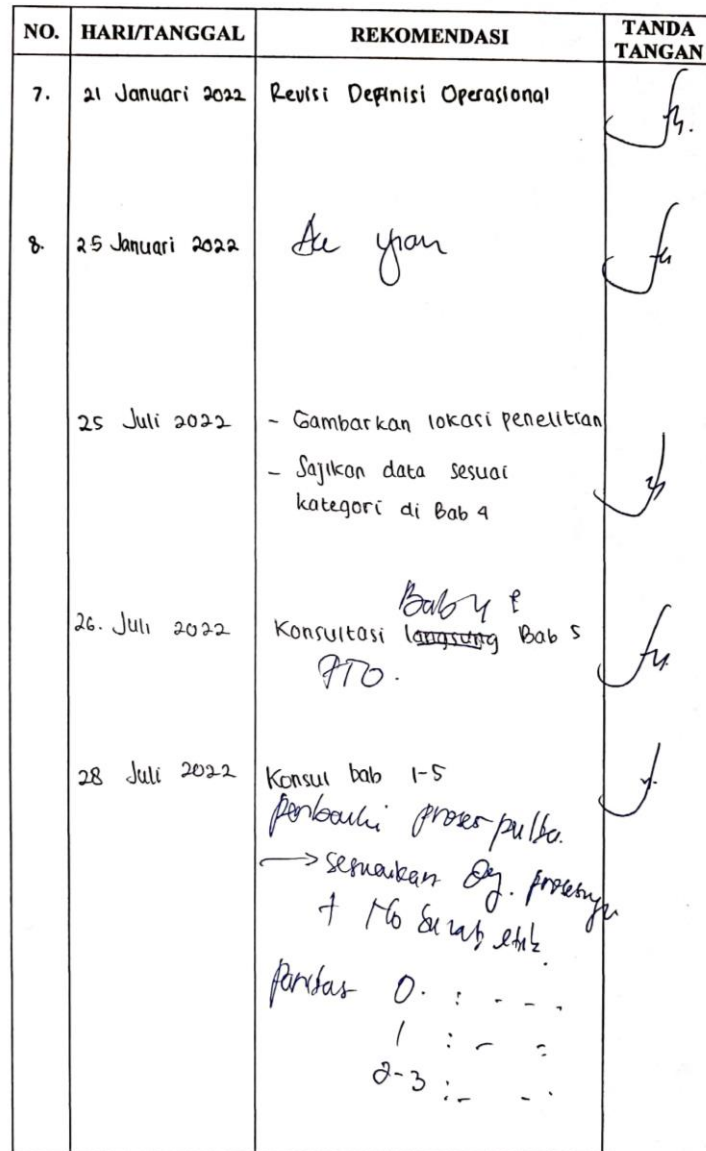 NO. HARI/TANGGAL REKOMENDASI TANDA TANGAN
7. 21 Januari 2022 Revisi Definisi Operasional
8. 25 Januari 2022 Acc ujian
25 Juli 2022 - Gambarkan lokasi penelitian
- Sajikan data sesuai
kategori di Bab 4
Bab 4 &
26. Juli 2022 Konsultasi langsung Bab 5
28 Juli 2022 Konsul bab 1-5
perbaiki proses
→ sesuaikan dg. prosesnya
+ No Surat etik.
paritas 0. : - - -
1 : - -
2-3 : - -